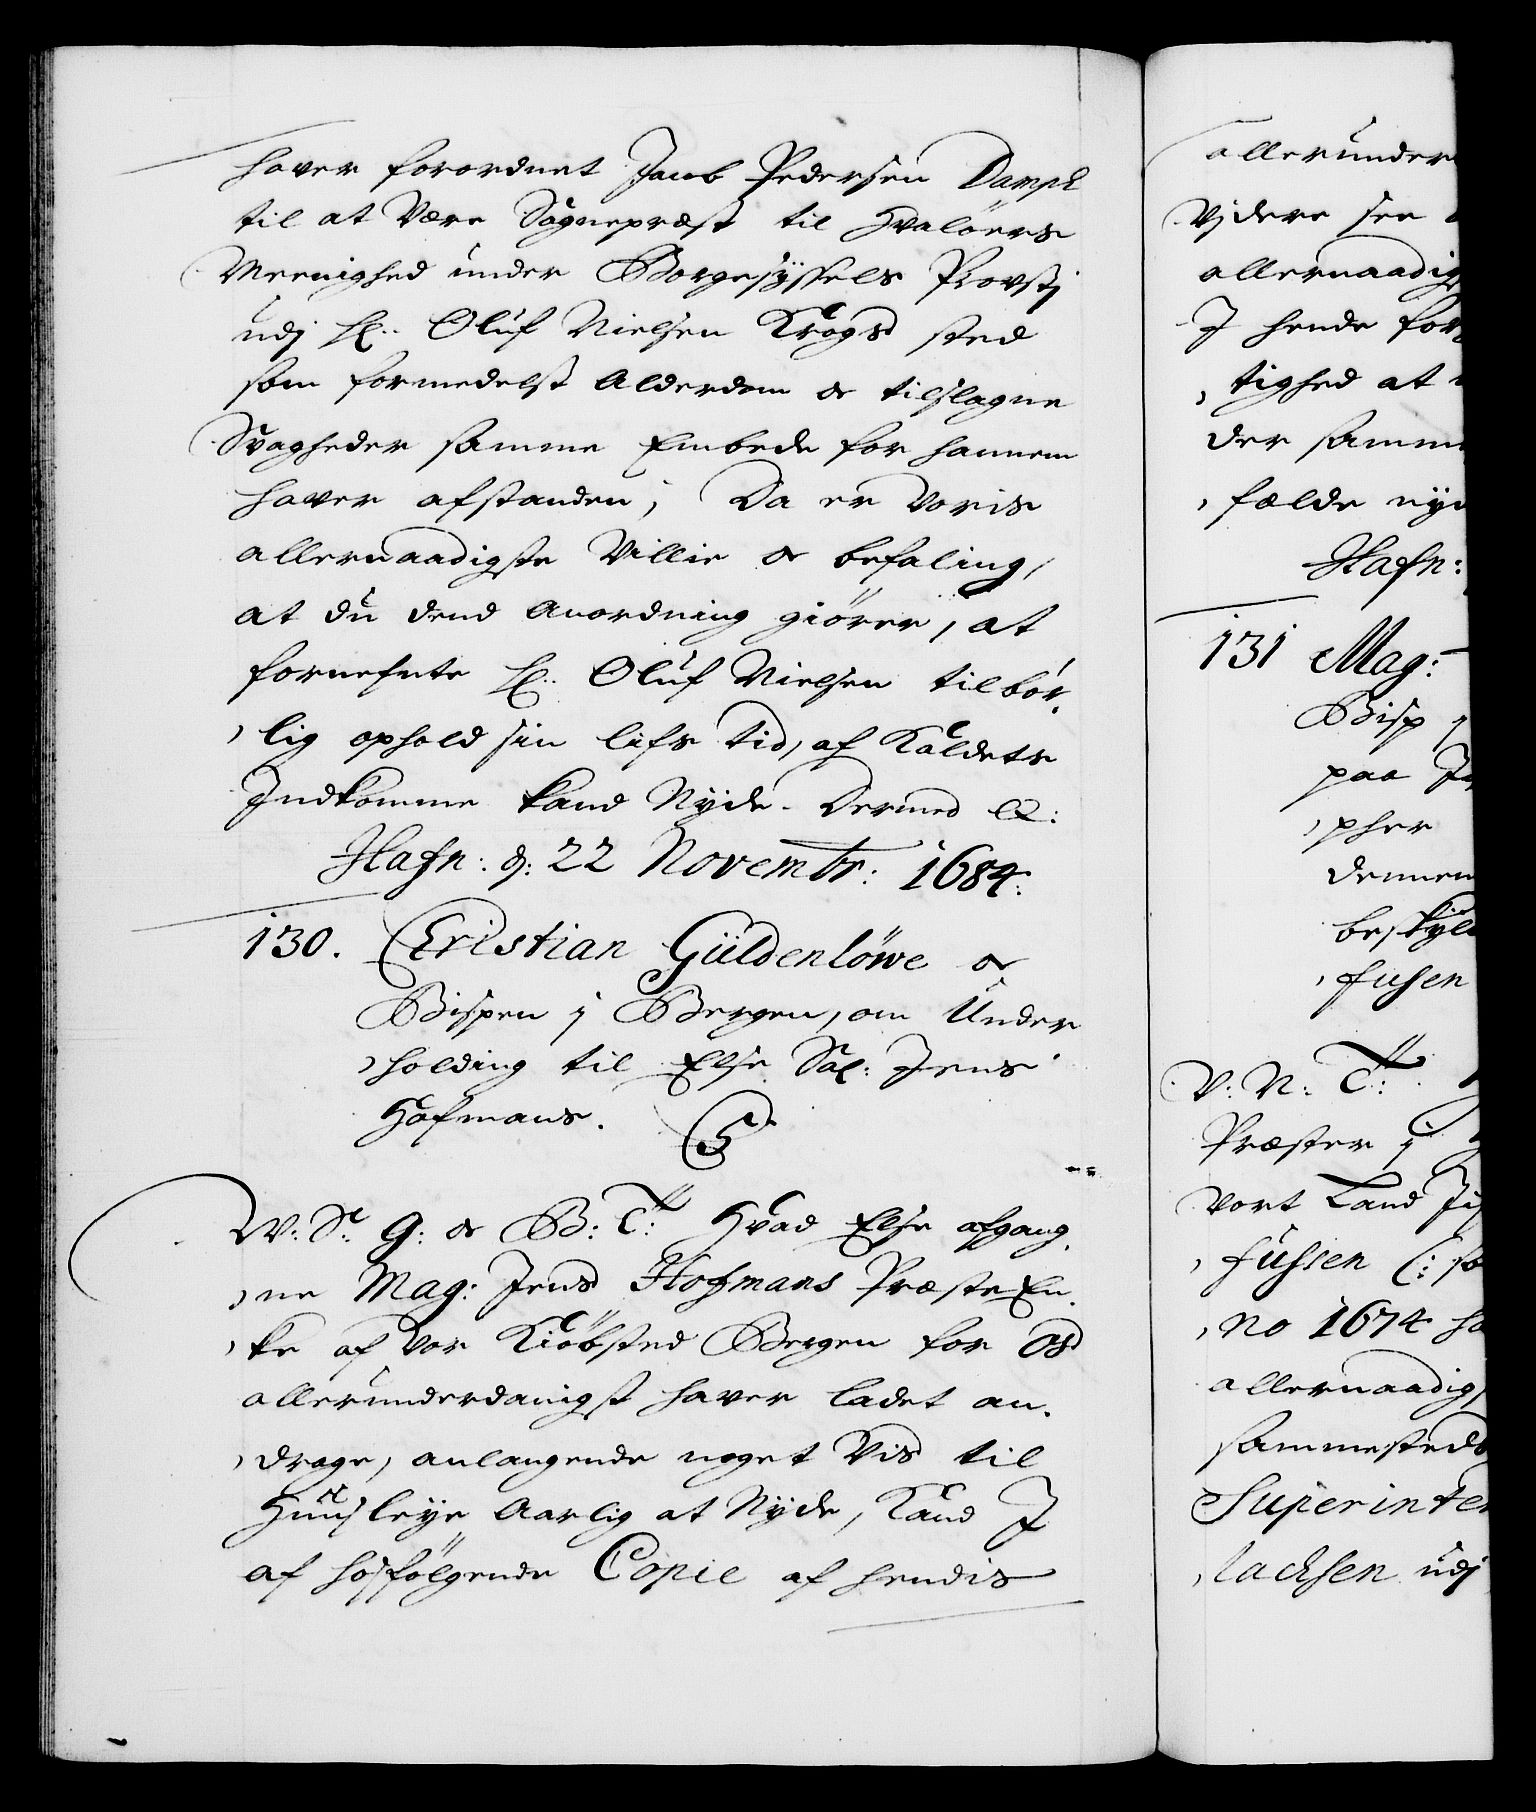 hafver forordnet Jacob Pedersen Dampe
til at være Sognepræst til Hvalöers
Meenighed under Borgesyssels Provstj
udj Hr: Oluf Nielsen Krogs sted
som formedelst Alderdom oc tilslagne
Svagheder samme Embede for hannem
hafver afstanden, Da er Voris
allernaadigste Villie oc befaling,
at du dend Anordning giörer, at
fornefnte Hr: Oluf Nielsen tilbör-
lig ophold sin lifs tid, af Kaldets
Indkomme kand Nyde. Dermed etc:
Hafn: d: 22 Novembr: 1684.
130. Christian Güldenlöwe oc
Bispen j Bergen, om Under
holding til Else Sal: Jens
Hofmans.
W: S: G: oc B: T: Hvad Else afgang-
ne Mag: Jens Hofmans Præste En-
ke af vor Kiöbsted Bergen for Os
allerunderdanigst hafver ladet an-
drage, anlangende noget Vis til
Huusleye Aarlig at Nyde, Kand I
af hosfölgende Copie af hendis
allerunder
Vjdere see
allernaadig
I hende for
tighed at
der samm
fælde nyd
Hafn:
131 Mag:
Bisp
paa
pher
dennem
beskyld
fusen
V: N: T:
Præster j
Vort Land
fussen (: so
no 1674 ha
allernaadig
sammesteds
Superinten
sachsen udj